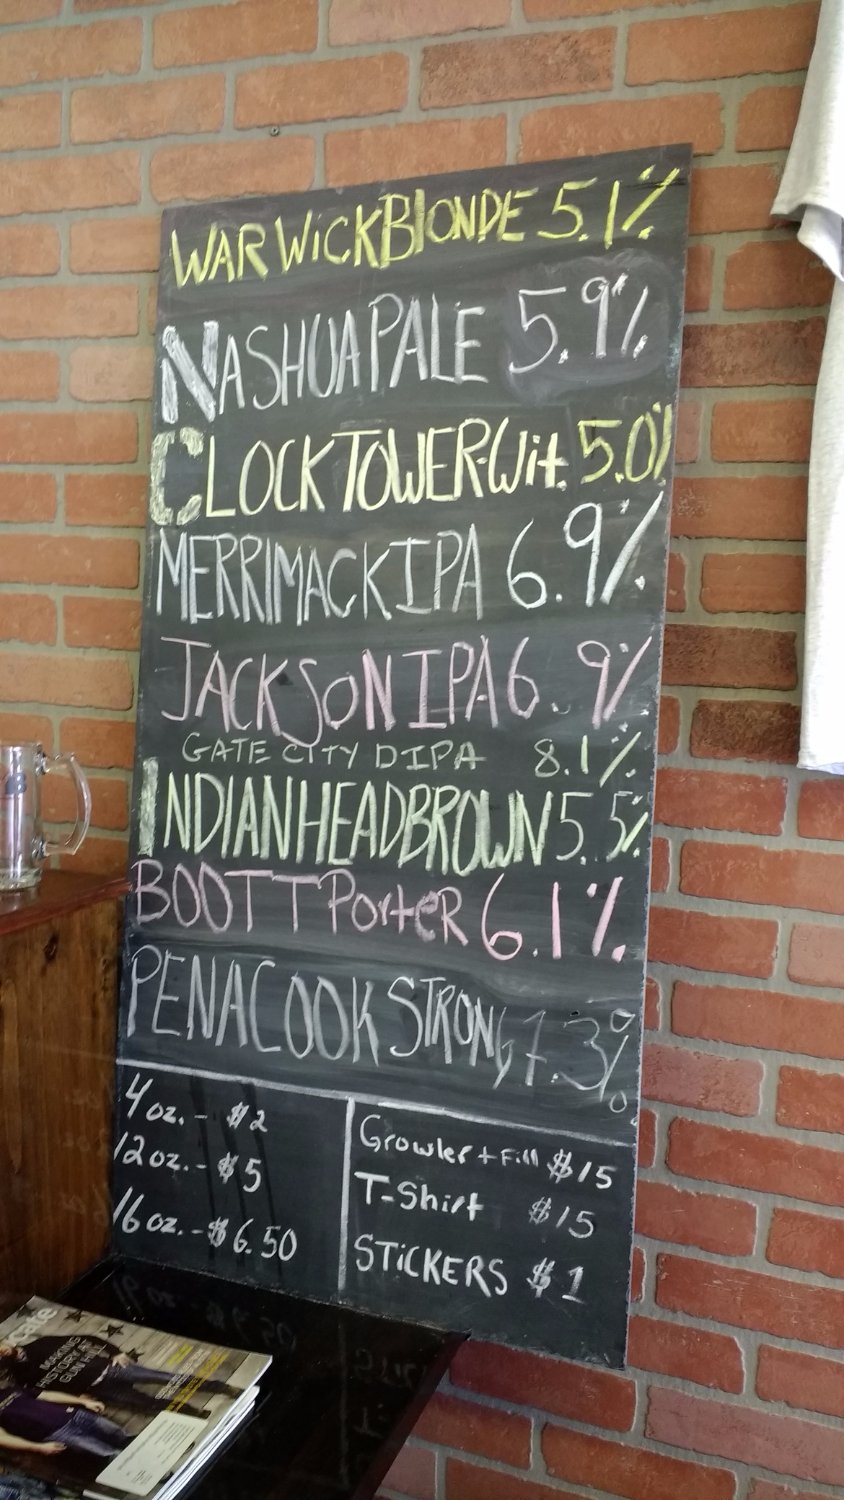 WARWiCK BlONDE 5.1%
NASHUA PALE 5.9%
CLOCKTOWER-Wit. 5.0%
MERRIMACK IPA 6.9%
JACKSON IPA 6.9%
GATE CITY DIPA 8.1%
INDIANHEAD BROWN 5.5%
BOOTT PorteR 6.1%
PENACOOK STRONG 7.3%
4 oz. - $2
12 oz. - $5
16 oz. - $6.50
Growler + Fill $15
T-Shirt $15
STiCKERS $1
MAKING
HISTORY AT
GUN HILL